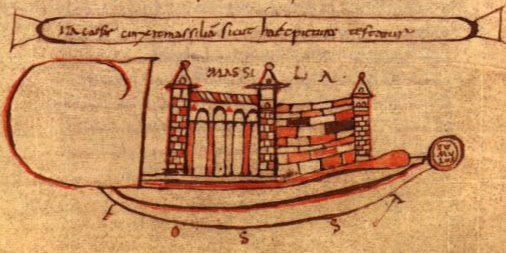 Ita caesar cinxit massiliā sicut haec pictura testatur
MASSI L A.
TU
MU
LUS
FOSSA